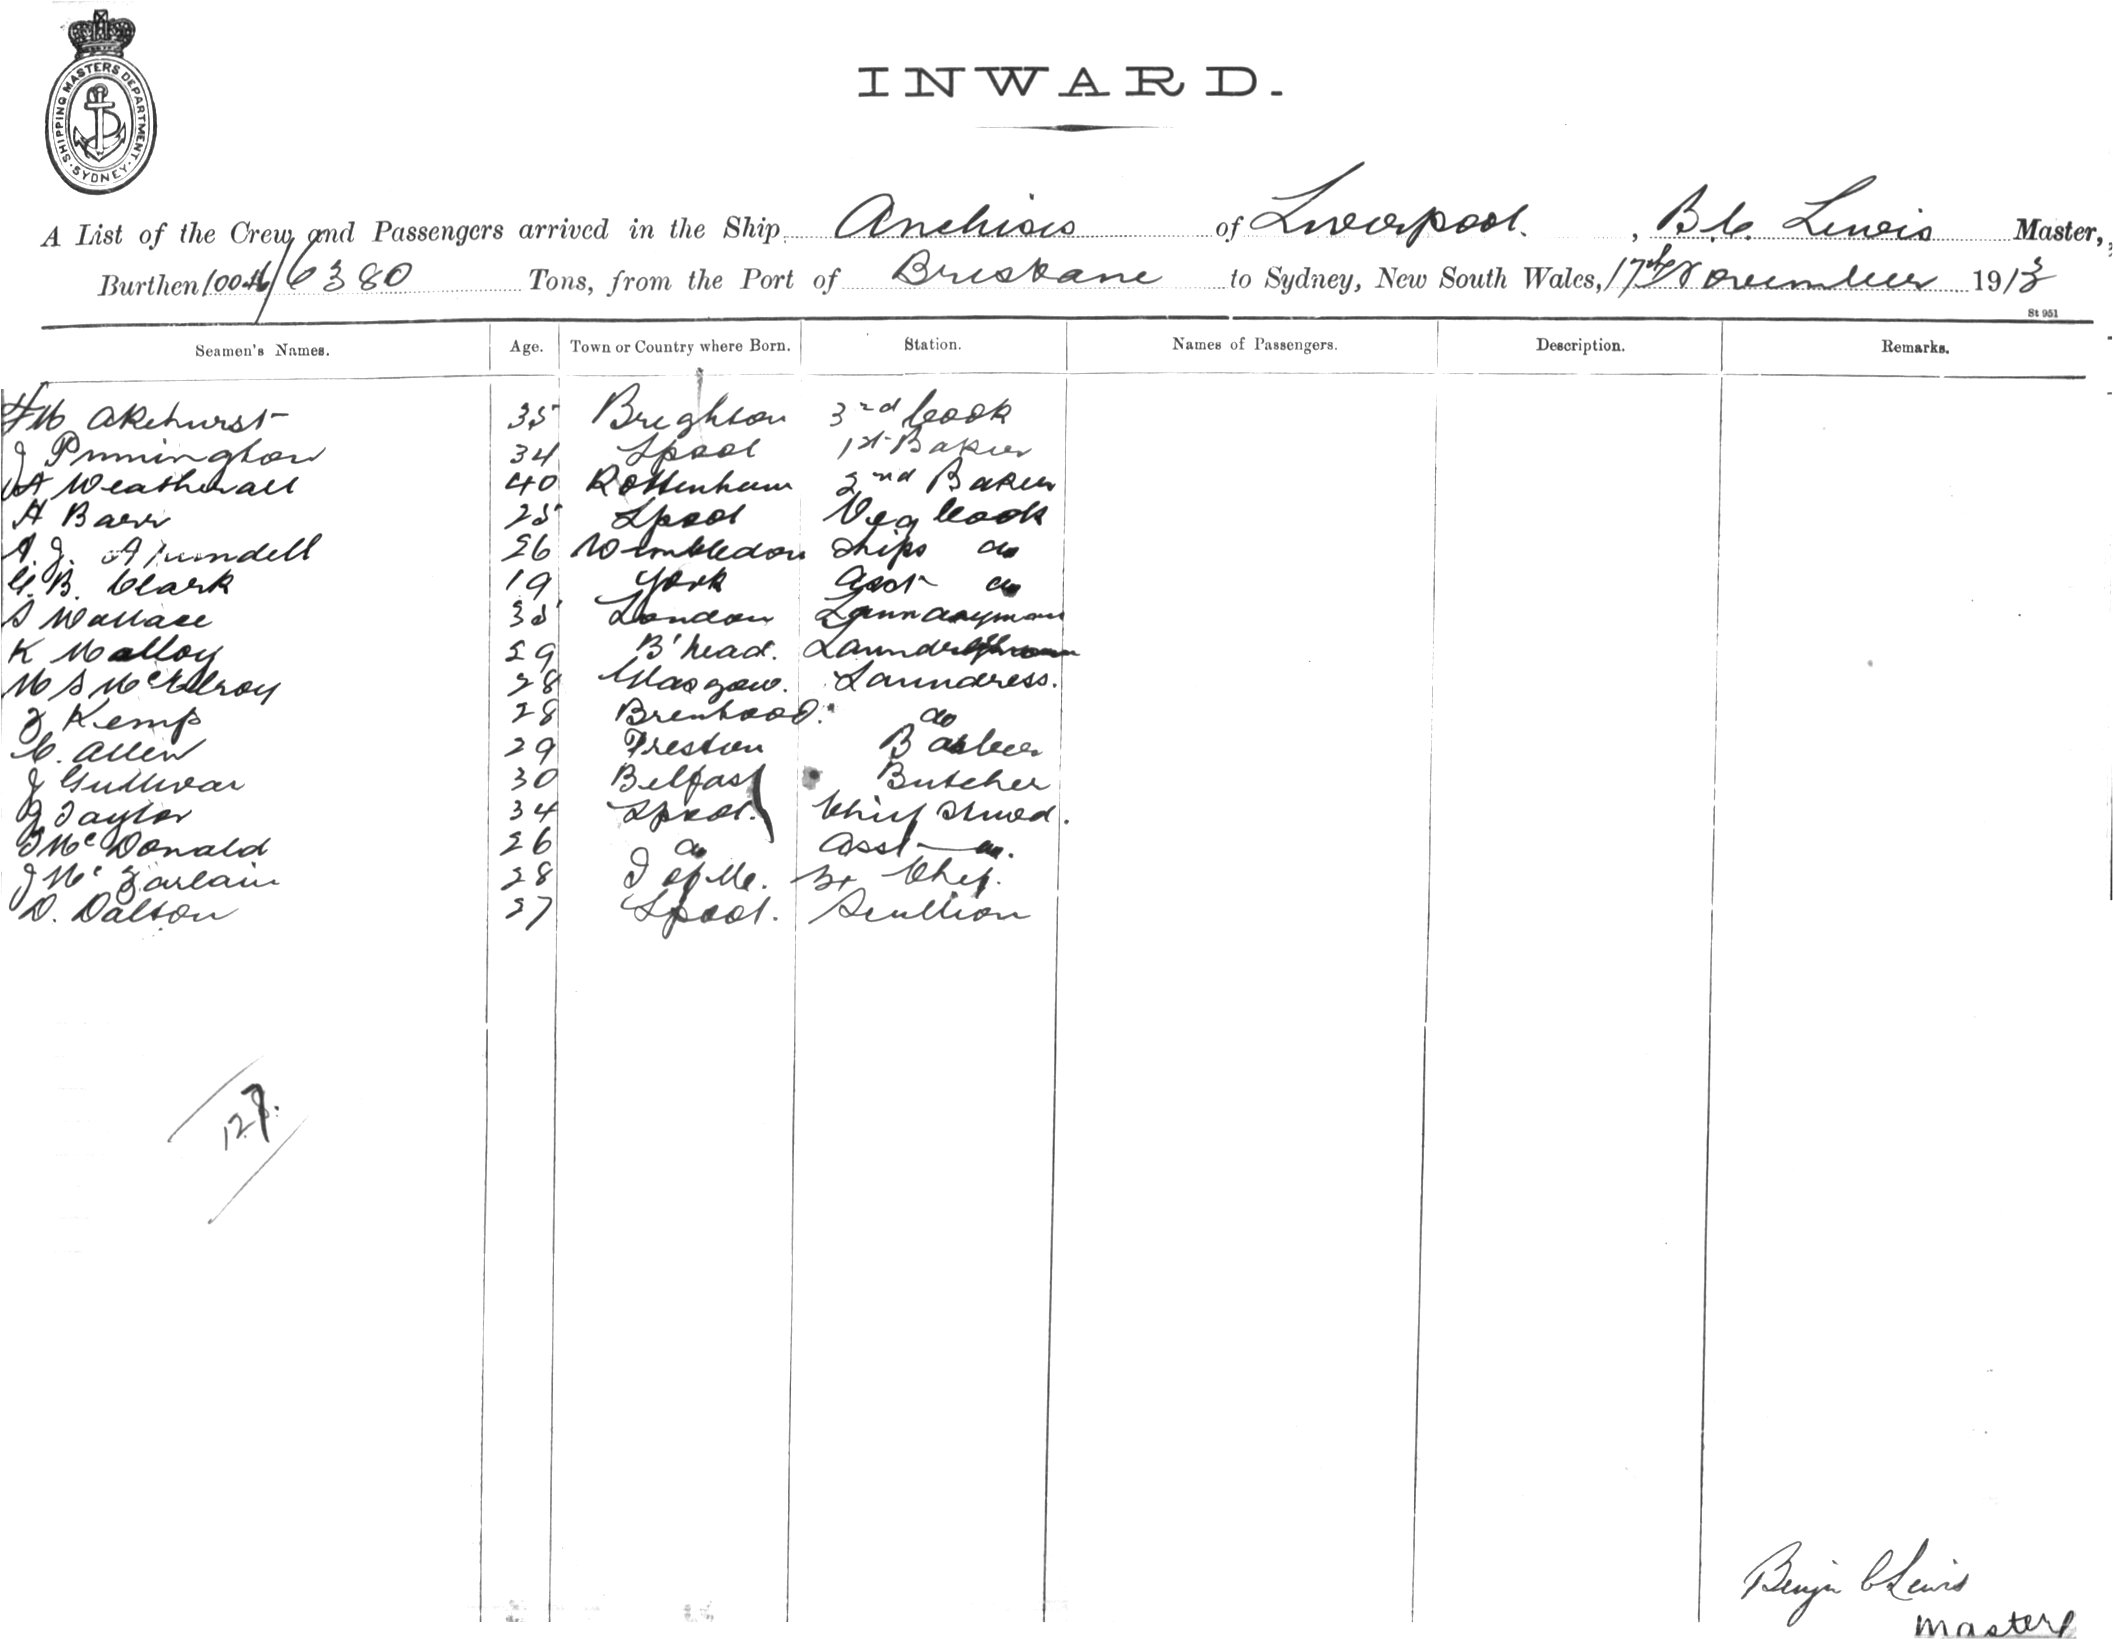 SHIPPING MASTERS DEPARTMENT · SYDNEY ·
INWARD.
A List of the Crew and Passengers arrived in the Ship Anchises of Liverpool. , B. C. Lewis Master,
Burthen 10046/6380 Tons, from the Port of Brisbane to Sydney, New South Wales, 17th November 1913
St 951
Seamen's Names. Age. Town or Country where Born. Station. Names of Passengers. Description. Remarks.
Akehurst 35 Brighton 3rd Cook
J Pinnington 34 Lpool 1st Baker
A Weatherall 40 Rottenham 2nd Baker
H Barr 25 Lpool Veg Cook
A. J. Arundell 26 Wimbledon Ships do
C. B. Clark 19 York Asst do
S Wallace 35 London Laundryman
K Malloy 29 B'head. Laundress
M S McElroy 28 Glasgow. Laundress.
Kemp 28 Brentwood. do
C. Allen 29 Preston Barber
J Gulliver 30 Belfast Butcher
J Taylor 34 Lpool. Chief Stwd.
McDonald 26 do Asst do.
J Mc 28 I of M. Chef.
D. Dalton 27 Lpool. Scullion
127.
Benjn C Lewis
Master